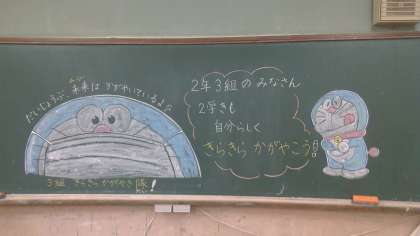 だいじょうぶ 未来は かがやいているよ♪
みらい
2年3組のみなさん
2学きも
自分らしく
きらきら かがやこう
3組 きらきら かがやき隊!